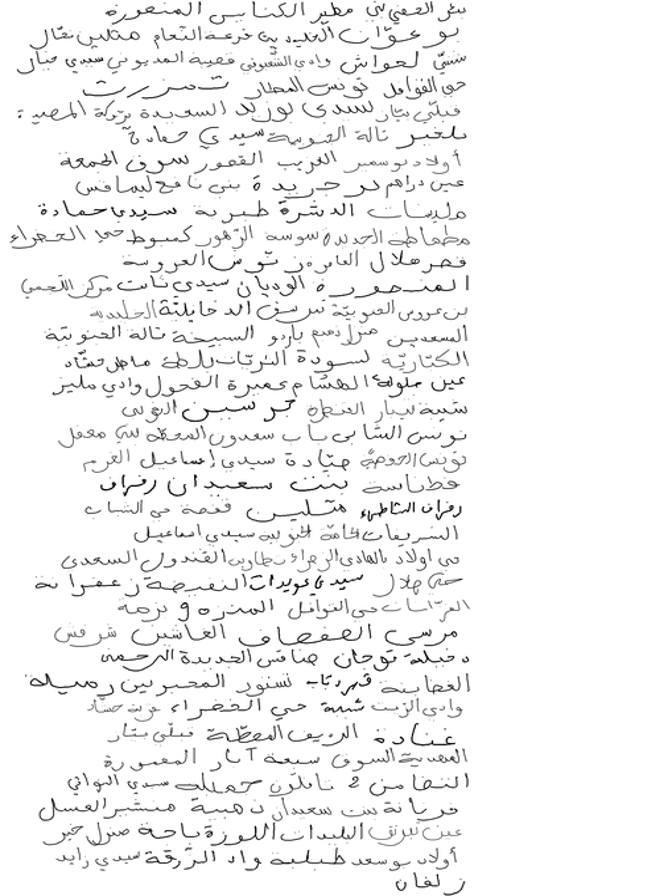 بئر الحفي بني مطير الكنايس المنصورة
بو عوّان الخليدية خزعة النّعام متلين نقال
سنتيّ لعواش وادي الشعبوني قصيبة المديوني سيدي خيار
حي القوافل تونس المطار تمزرت
قبلّي بيّاز لسيدي بوزيد السعيدة بركة المصيد
بلخير تالة الجنوبية سيدي حمادة
أولاد بوسمير الغريب القصور سوق الجمعة
عين دراهم لرجريدة بني نافع ليمافس
مليتات الدشرة طبربة سيدي حمادة
مطماطة الجديدة سوسة الزّهور كمبوط حي الخضراء
قصر هلال العامرة تونس العروسة
المنصورة الوديان سيدي ثابت مركز اللّجمي
بن عروس الجنوبيّة تبرسق الدخايليّة الخليدية
المسعدين منزل تميم باردو السبيخة تالة الجنوبية
الكتاريّة لسودة الثريّات بلطة ماطر حشّاد
عين جلولة الهشام عميرة الفحول وادي مليز
شبيبة نيبار الفحلة جرسين التوبي
تونس الشابي باب سعدون المحطة بني معقل
تونس الحفصيّة صيّادة سيدي إسماعيل القرم
فطناسة بنت سعيدان رفراف
رفراف الشاطىء متلين قفصة حي الشباب
الشريفات الحامّة الجنوبية سيدي اسماعيل
حي اولاد بالهادي الزهراء تطاوين القندول السعدي
حيّ هلال سيدي عويدات النفيضة زعفرانة
العرّاسات حي القوافل المنزه 9 نزهة
مرسى الصفصاف الغاشين شرفش
دخيلة توجان صفاقس الجديدة الرحمة
الغضابنة قمرت تستور المحبرين رميلة
وادي الزيت شبيبة حي الخضراء حشّاد
غنادة الريف المحطّة قبلّي بيّاز
المهدية السوق سبعة آبار المعمورة
التضامن 2 نابلون جميلة سيدي التواتي
فريانة بنت سعيدان ذهبية منشير العسل
عين تبرنق البليدات اللوزة باجة منزل خير
أولاد بوسعد طبلبة واد الزرقة سيدي زايد
زلفان